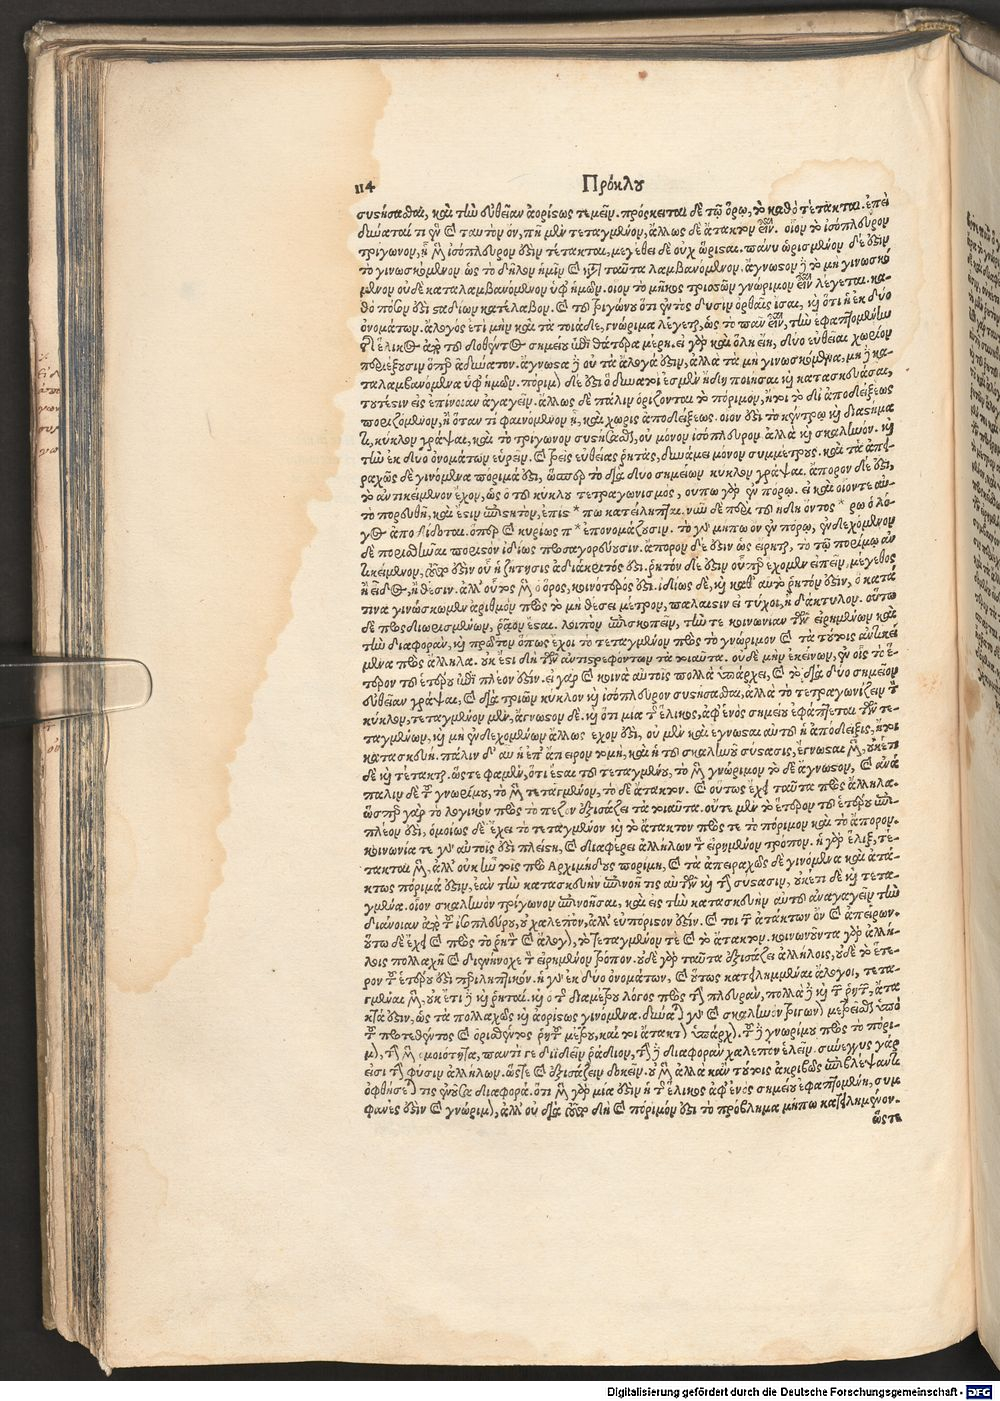 114 Πρόκλου
συστήσασθαι, καὶ τὴν εὐθεῖαν ἀορίστως τεμεῖν. πρόσκειται δὲ τῷ ὅρῳ, τὸ καθὸ τέτακται. ἐπεὶ
δύναταί τι ἓν καὶ ταυτὸν ὂν, πῆ μὲν τεταγμένον, ἄλλως δὲ ἄτακτον εἶναι. οἷον τὸ ἰσόπλευρον
τρίγωνον, ᾗ μὲν ἰσόπλευρον ἐστὶν τέτακται, μεγέθει δὲ οὐχ ὥρισται. πάνυ ὡρισμένον δέ ἐστιν
τὸ γινωσκόμενον ὡς τὸ δῆλον ἡμῖν καὶ ταῦτα λαμβανόμενον. ἄγνωστον δὲ τὸ μὴ γινωσκό
μενον οὐδὲ καταλαμβανόμενον ὑφ' ἡμῶν. οἷον τὸ μῆκος τῆς ὁδοῦ γνώριμον εἶναι λέγεται. κα
θὸ πόσων ἐστὶ σταδίων κατέλαβον. καὶ τοῦ τριγώνου ὅτι ἐντὸς δυσὶν ὀρθαῖς ἴσαι, καὶ ὅτι ἡ ἐκ δύο
ὀνομάτων. ἄλογός ἐστι μὴν καὶ τὰ τοιάδε, γνώριμα λέγεται, ὡς τὸ πᾶν εἶναι, τὴν ἐφαπτομένην
τῆς ἕλικος ἀπὸ τοῦ δοθέντος σημείου ἐπὶ θάτερα μέρη. εἰ γὰρ καὶ ὅλη εἴη, δύο εὐθεῖαι χωρίον
περιέξουσιν ὅπερ ἀδύνατον. ἄγνωστα δὲ οὐ τὰ ἄλογά ἐστιν, ἀλλὰ τὰ μὴ γινωσκόμενα, μὴ δὲ κα
ταλαμβανόμενα ὑφ' ἡμῶν. πόριμον δέ ἐστι ὃ δυνατοί ἐσμεν ἤδη ποιῆσαι καὶ κατασκευάσαι,
τουτέστιν εἰς ἐπίνοιαν ἀγαγεῖν. ἄλλως δὲ πάλιν ὁρίζονται τὸ πόριμον, ἤτοι τὸ δι' ἀποδείξεως
ποριζόμενον, ἢ ὅταν τι φαινόμενον ᾖ, καὶ χωρὶς ἀποδείξεως. οἷον ἐστὶ τὸ κέντρῳ καὶ διαστήμα
τι, κύκλον γράψαι, καὶ τὸ τρίγωνον συστήσασθαι, οὐ μόνον ἰσόπλευρον ἀλλὰ καὶ σκαληνόν. καὶ
τὴν ἐκ δύο ὀνομάτων εὑρεῖν. καὶ τρεῖς εὐθείας ῥητὰς, δυνάμει μόνον συμμέτρους. καὶ τὰ ἀπει
ραχῶς δὲ γινόμενα πόριμά ἐστι, ὥσπερ τὸ διὰ δύο σημείων κύκλον γράψαι. ἄπορον δέ ἐστι,
τὸ ἀντικείμενον ἔχον, ὡς ὁ τοῦ κύκλου τετραγωνισμός, οὔπω γὰρ ἐν πόρῳ. εἰ καὶ οἷόν τε αὐ
τὸ πορισθῆναι, καὶ ἔστιν ἐπιστητὸν, ἐπιστ * πω κατείληπται. νῦν δὲ περὶ τοῦ ἤδη ὄντος * ρω ὁ λό
γος ἀποδίδοται. ὅπερ καὶ κυρίως π * ἐπονομάζουσιν. τὸ γοῦν μήπω ὂν ἐν πόρῳ, ἐνδεχόμενον
δὲ πορισθῆναι ποριστὸν ἰδίως προσαγορεύουσιν. ἄπορον δέ ἐστιν ὡς εἴρηται, τὸ τῷ πορίμῳ ἀν
τικείμενον, τοῦτο ἐστὶν οὗ ἡ ζήτησις ἀδιάκριτός ἐστι. ῥητὸν δέ ἐστιν οὗπερ ἔχομεν εἰπεῖν, μέγεθος
ἢ εἶδος, ἢ θέσιν. ἀλλ' οὗτος μὲν ὁ ὅρος, κοινότερός ἐστι. ἰδίως δὲ, καὶ καθ' αὑτὸ ῥητόν ἐστιν, ὃ κατά
τινα γινώσκωμεν ἀριθμὸν πρὸς τὸ μὴ θέσει μέτρον, παλαιστὴν εἰ τύχοι, ἢ δάκτυλον. οὕτω
δὲ προσδιωρισμένων, ῥᾷον ἔσται. λοιπὸν ἐπισκοπεῖν, τήν τε κοινωνίαν τῶν εἰρημένων καὶ
τὴν διαφορὰν, καὶ πρῶτον ὅπως ἔχοι τὸ τεταγμένον πρὸς τὸ γνώριμον καὶ τὰ τούτοις ἀντικεί
μενα πρὸς ἄλληλα. οὐκ ἔστι δὴ τῶν ἀντιστρεφόντων τὰ τοιαῦτα. οὐδὲ μὴν ἐκείνων, ἐν οἷς τὸ ἕ-
τερον τοῦ ἑτέρου ἐπὶ πλέον ἐστίν. εἰ γὰρ καὶ κοινὰ αὐτοῖς πολλὰ ὑπάρχει, καὶ τὸ διὰ δύο σημείων
εὐθεῖαν γράψαι, καὶ διὰ τριῶν κύκλον καὶ ἰσόπλευρον συστήσασθαι, ἀλλὰ τὸ τετραγωνίζειν τὸν
κύκλον, τεταγμένον μὲν, ἄγνωστον δέ. καὶ ὅτι μία τῆς ἕλικος, ἀφ' ἑνὸς σημείου ἐφάπτεται τῶν τε-
ταγμένων, καὶ μὴ ἐνδεχομένων ἄλλως ἔχον ἐστὶ, οὐ μὲν καὶ ἔγνωσται αὐτοῦ ἡ ἀπόδειξις, ἤτοι
κατασκευή. πάλιν δ' αὖ ἡ ἐπ' ἄπειρον τομὴ, καὶ ἡ τοῦ σκαληνοῦ σύστασις, ἔγνωσται μὲν, οὐκέτι
δὲ καὶ τέτακται. ὥστε φαμὲν, ὅτι ἔσται τοῦ τεταγμένου, τὸ μὲν γνώριμον τὸ δὲ ἄγνωστον, καὶ ἀνά
παλιν δὲ τοῦ γνωρίμου, τὸ μὲν τεταγμένον, τὸ δὲ ἄτακτον. καὶ οὕτως ἔχει ταῦτα πρὸς ἄλληλα.
ὥσπερ γὰρ τὸ λογικὸν πρὸς τὸ πεζὸν ἐξισάζει τὰ τοιαῦτα. οὔτε μὲν τὸ ἕτερον τοῦ ἑτέρου ἐπὶ
πλέον ἐστὶ, ὁμοίως δὲ ἔχει τὸ τεταγμένον καὶ τὸ ἄτακτον πρός τε τὸ πόριμον καὶ τὸ ἄπορον.
κοινωνία τε γοῦν αὐτοῖς ἐστὶ πλείστη, καὶ διαφέρει ἀλλήλων τὸν εἰρημένον τρόπον. ἡ γὰρ ἕλιξ, τέ-
τακται μὲν, ἀλλ' οὐκ ἦν τοῖς πρὸ Ἀρχιμήδους πορίμη, καὶ τὰ ἀπειραχῶς δὲ γινόμενα καὶ ἀτά-
κτως πόριμά ἐστιν, ἐὰν τὴν κατασκευὴν ἐπινοῇ τις αὐτῶν καὶ τὴν σύστασιν, οὐκέτι δὲ καὶ τετα-
γμένα. οἷον σκαληνὸν τρίγωνον ἐπινοῆσαι, καὶ εἰς τὴν κατασκευὴν αὐτοῦ ἀναγαγεῖν τὴν
διάνοιαν ἀπὸ τοῦ ἰσοπλεύρου, οὐ χαλεπὸν, ἀλλ' εὐπόριστον ἐστίν. καὶ τοι τῶν ἀτάκτων ὂν καὶ ἀπείρων.
οὕτω δὲ ἔχει καὶ πρὸς τὸ ῥητὸν καὶ ἄλογον, τὸ τεταγμένον τὲ καὶ τὸ ἄτακτον. κοινωνοῦντα γὰρ ἀλλή-
λοις πολλαχῇ καὶ διενήνοχε τὸν εἰρημένον τρόπον. οὐδὲ γὰρ ταῦτα ἐξισάζει ἀλλήλοις, οὐδὲ τὸ ἕτε-
ρον τοῦ ἑτέρου ἐστὶ περιληπτικόν. ἡ γοῦν ἐκ δύο ὀνομάτων, καὶ οὕτως κατειλημμέναι ἄλογοι, τετα-
γμέναι μὲν, οὐκέτι δὲ καὶ ῥηταί. καὶ ὁ τῆς διαμέτρου λόγος πρὸς τὴν πλευρὰν, πολλὰ δὲ καὶ τῶν ῥητῶν, ἄτα
κτά ἐστιν, ὡς τὰ πολλαχῶς καὶ ἀορίστως γινόμενα. δύναται γοῦν καὶ σκαληνὸν τρίγωνον μετρεῖσθαι ὑπὸ
τοῦ προτεθέντος καὶ ὁρισθέντος ῥητοῦ μέτρου, καί τοι ἄτακτον ὑπάρχον. τοῦ δὲ γνωρίμου πρὸς τὸ πόρι-
μον, τὴν μὲν ὁμοιότητα, παντί γε διϊδεῖν ῥᾴδιον, τὴν δὲ διαφορὰν χαλεπὸν ἑλεῖν. σύνεγγυς γάρ
εἰσι τὴν φύσιν ἀλλήλων. ὥστε καὶ ἐξισάζειν δοκεῖν. οὐ μὲν ἀλλὰ κἂν τούτοις ἀκριβῶς ἐπιβλέψαντι
ὀφθήσεται τις ἐνοῦσα διαφορά. ὅτι μὲν γὰρ μία ἐστὶν ἡ τῆς ἕλικος ἀφ' ἑνὸς σημείου ἐφαπτομένη, συμ
φανές ἐστιν καὶ γνώριμον, ἀλλ' οὐ διὰ τοῦτο δὴ καὶ πόριμόν ἐστι τὸ πρόβλημα μήπω κατειλημμένον.
ὥστε
Digitalisierung gefördert durch die Deutsche Forschungsgemeinschaft - DFG